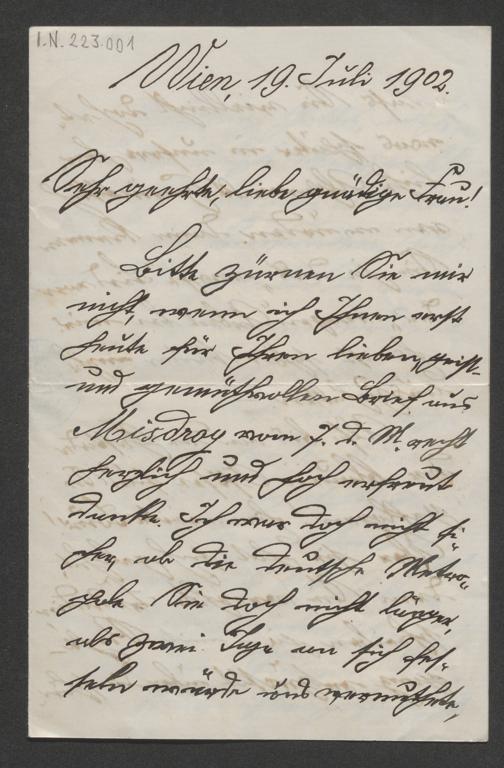 I.N. 223.001
Wien, 19. Juli 1902.
Sehr geehrte, liebe, gnädige Frau!
Bitte zürnen Sie mir
nicht, wenn ich Ihnen erst
heute für Ihren lieben, geist-
und gemüthvollen Brief aus
Misdroy vom 7. d. M. recht
herzlich und hoch erfreut
danke. Ich war doch nicht si-
cher, ob die deutsche Metro-
pole Sie doch nicht länger,
als zwei Tage an sich fes-
seln würde und vermuthete,